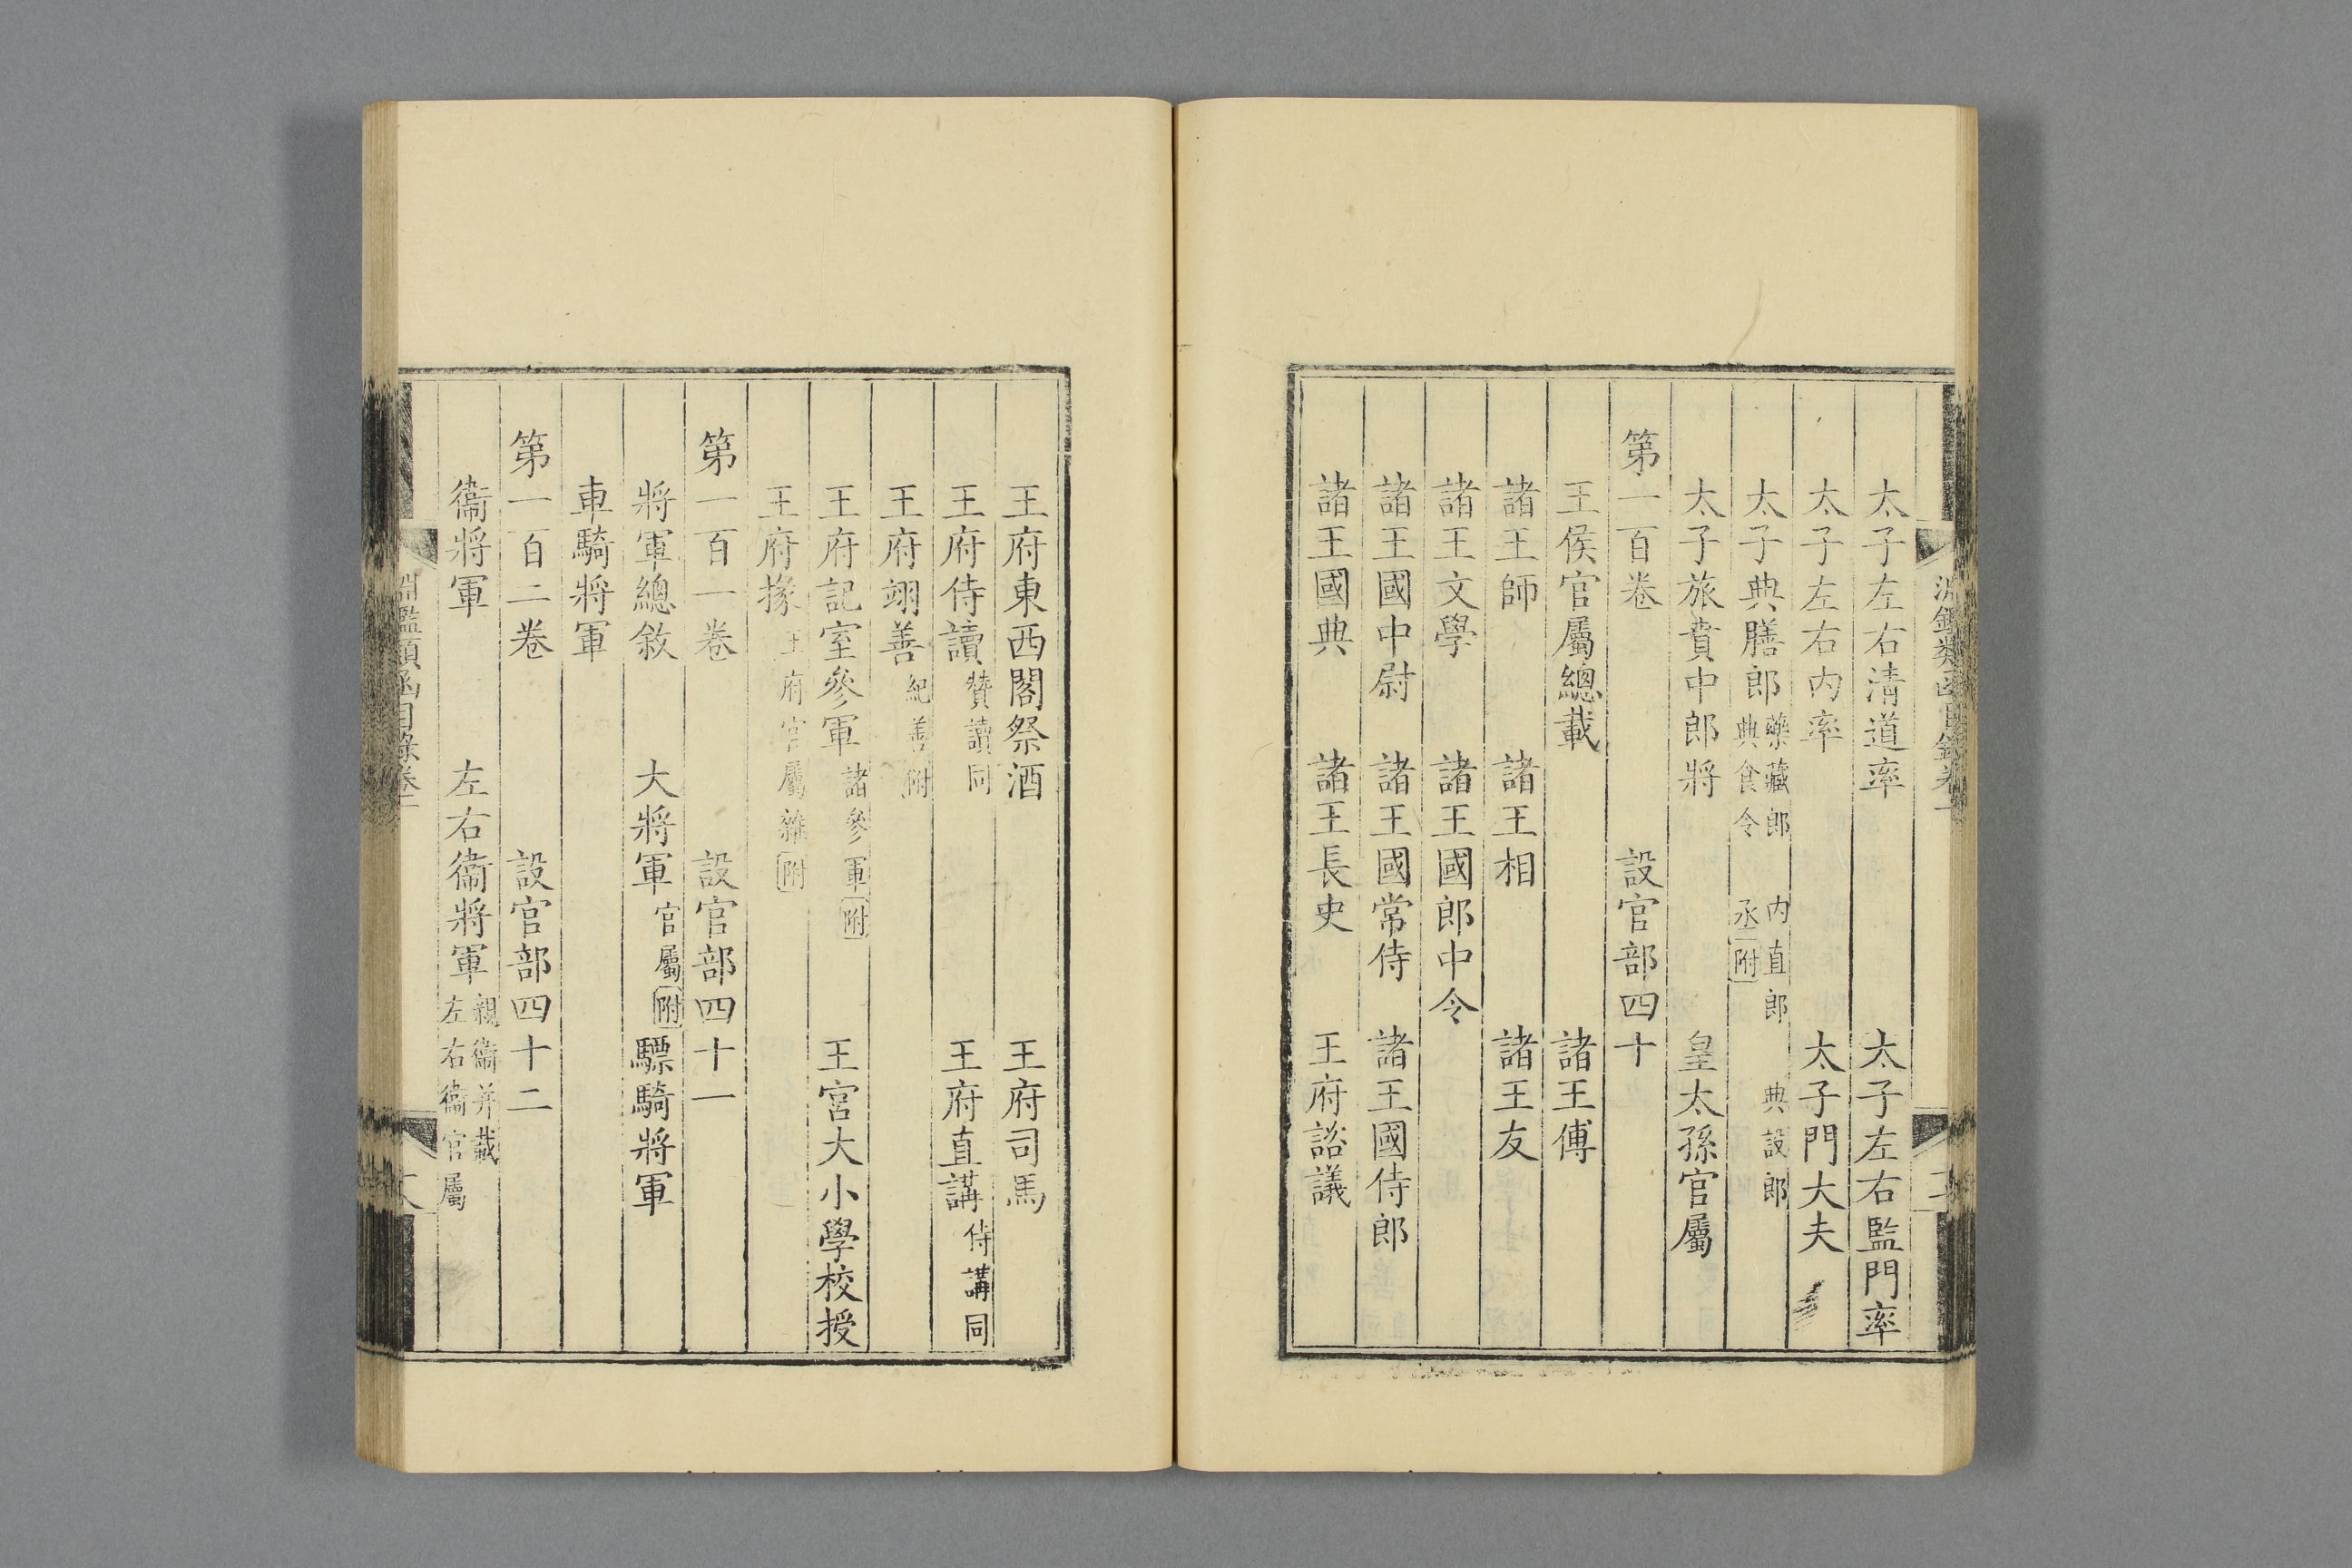 太子左右清道率 太子左右監門率
太子左右内率 太子門大夫
太子典膳郎 藥藏郎 内直郎 典設郎
典食令 丞附
太子旅賁中郎將 皇太孫官屬
第一百卷 設官部四十
王侯官屬總載 諸王傅
諸王師 諸王相 諸王友
諸王文學 諸王國郎中令
諸王國中尉 諸王國常侍 諸王國侍郎
諸王國典 諸王長史 王府諮議
王府東西閣祭酒 王府司馬
王府侍讀 贊讀同 王府直講 侍講同
王府翊善 紀善附
王府記室參軍 諸參軍附 王宮大小學校授
王府掾 王府官屬雜附
第一百一卷 設官部四十一
將軍總敘 大將軍 官屬附 驃騎將軍
車騎將軍
第一百二卷 設官部四十二
衞將軍 左右衞將軍 親衞并載
左右衞官屬
淵鑑類函目錄卷二